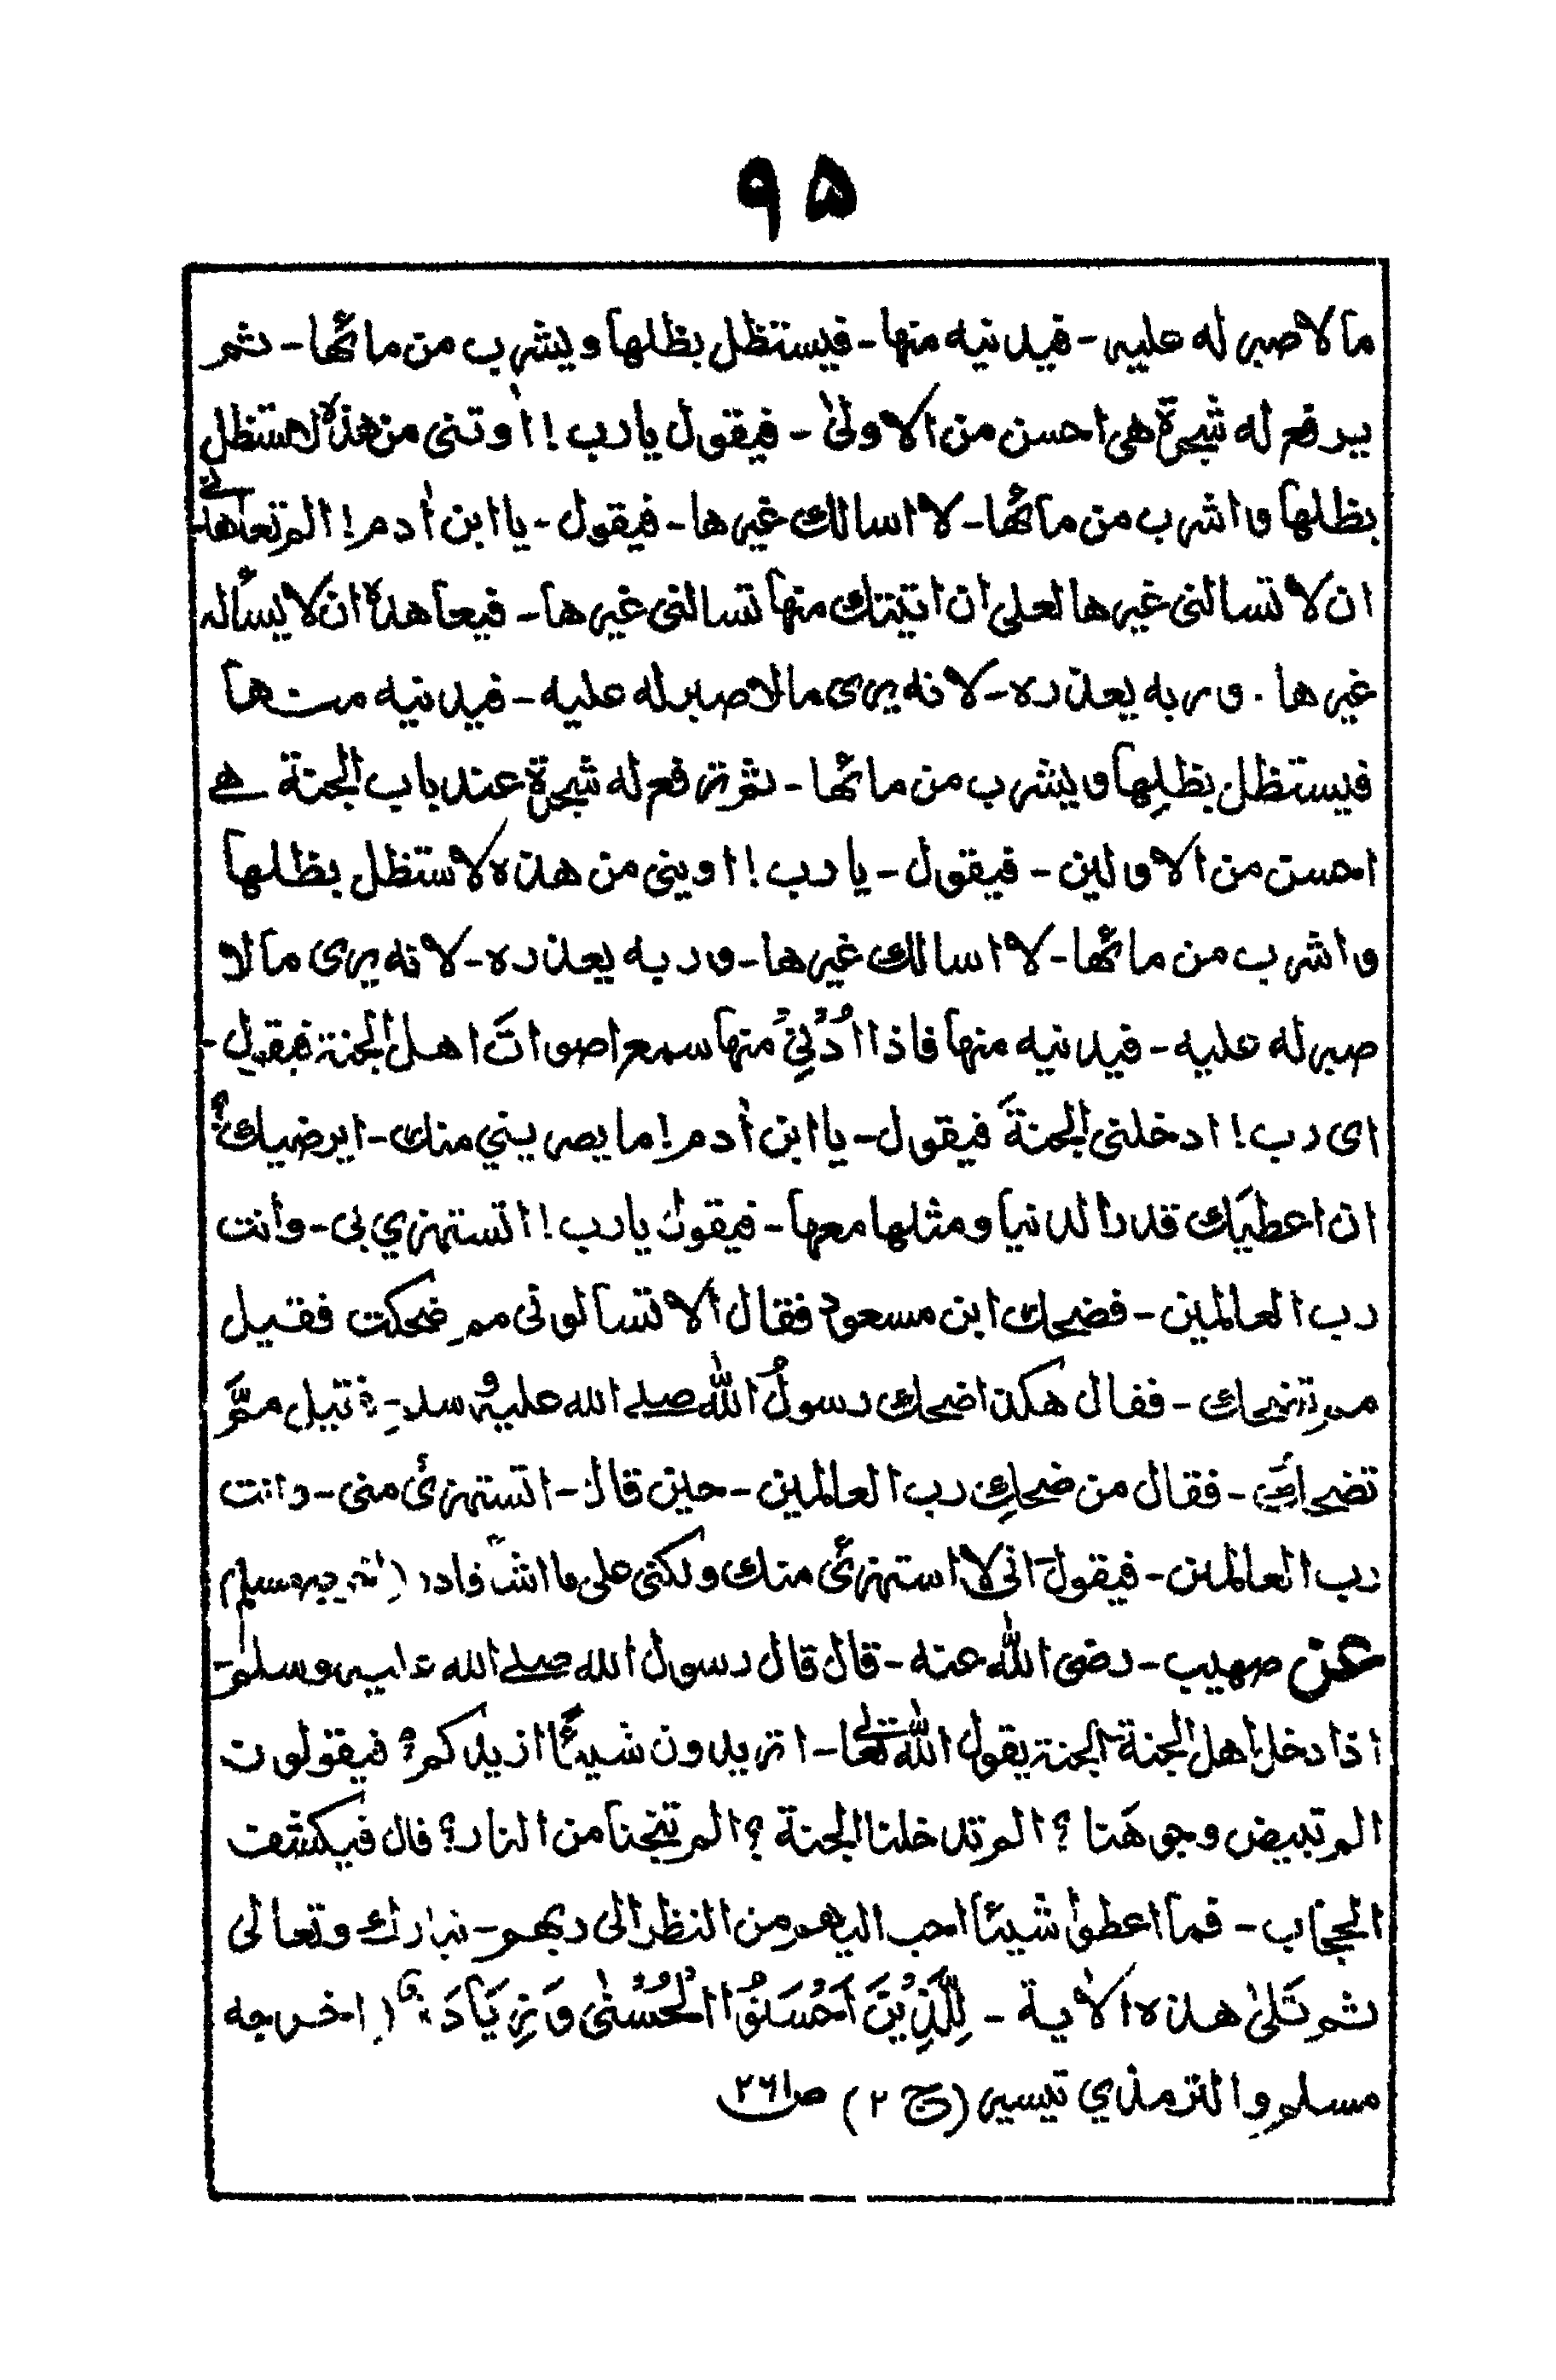 ۹۵
ما لا صبر له عليه - فيدنيه منها - فيستظل بظلها ويشرب من مائها - ثم
يرفع له شجرة هى احسن من الاولىٰ - فيقول يا رب ! اوتنى من هذه لاستظل
بظلها واشرب من مائها - لا اسالك غيرها - فيقول - يا ابن اٰدم ! الم تعاهدنى
ان لا تسالنى غيرها لعلى ان اتيتك منها تسالنى غيرها - فيعاهده ان لا يسأله
غيرها . وربه يعذره - لانه يرى ما لا صبر له عليه - فيدنيه منها
فيستظل بظلِها ويشرب من مائها - ثم ترفع له شجرة عند باب الجنة هى
احسن من الاولين - فيقول - يا رب ! اوينى من هذه لاستظل بظلها
واشرب من مائها - لا اسالك غيرها - وربه يعذره - لانه يرى ما لا
صبر له عليه - فيدنيه منها فاذا اُدْنِىَ منها سمع اصوات اهل الجنة فيقول -
اى رب ! ادخلنى الجنةَ فيقول - يا ابن اٰدم ! ما يصريني منك - ايرضيك
ان اعطيَك قدر الدنيا ومثلها معها - فيقول يا رب ! اتستهزي بى - وانت
رب العالمين - فضحك ابن مسعود فقال الا تسالونى مم ضحكت فقيل
مم تضحك - فقال هكذا ضحك رسولُ اللّٰه صلى الله عليه وسلم - فقيل ممَّ
تضحك - فقال من ضحكِ رب العالمين - حين قال - اتستهزئ منى - وانت
رب العالمين - فيقول انى لا استهزئ منك ولكنى على ما اشاء قادر (اخرجه مسلم)
عن صهيب - رضى اللّٰه عنه - قال قال رسول الله صلى الله عليه وسلم -
اذا دخل اهل الجنة الجنة يقول اللّٰه تعالى - اتريدون شيئًا ازيدكم ؟ فيقولون
الم تبيض وجوهَنا ؟ الم تدخلنا الجنة ؟ الم تنجنا من النار ؟ قال فيكشف
الحجاب - فما اعطوا شيئا احب اليهم من النظر الى ربهم - تبارك وتعالى
ثم تَلىٰ هذه الاٰية - لِلَّذِيْنَ اَحْسَنُوا الْحُسْنٰى وَزِيَادَة (اخرجه
مسلم والترمذي تيسير (ج ٢) ص٢٦١